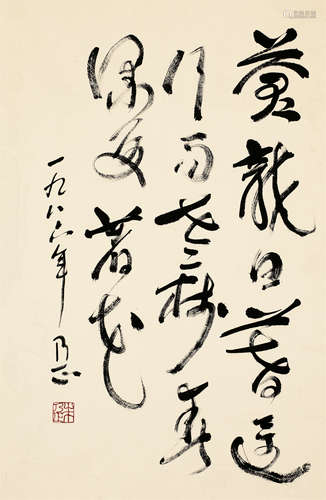 蒼龍日暮還
行雨老樹春
深更著花
一九八六年 乃正